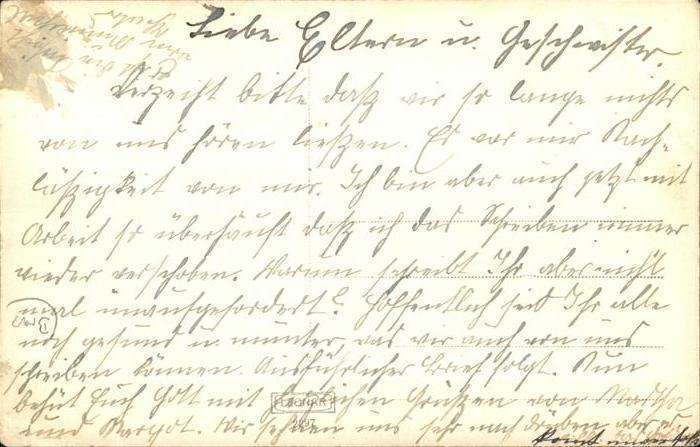 Liebe Eltern u. Geschwister.
Verzeiht bitte daß wir so lange nichts
von uns hören ließen. Es war nur Nach-
läßigkeit von mir. Ich bin aber auch jetzt mit
Arbeit so überhäuft daß ich das Schreiben immer
wieder verschoben. Warum schreibt Ihr aber nicht
mal unaufgefordert? Hoffentlich seid Ihr alle
noch gesund u. munter, das wir auch von uns
schreiben können. Ausführlicher Brief folgt. Nun
behüt Euch Gott mit herzlichen Grüßen von Martha
und Margot. Wir sehnen uns sehr nach drüben aber es